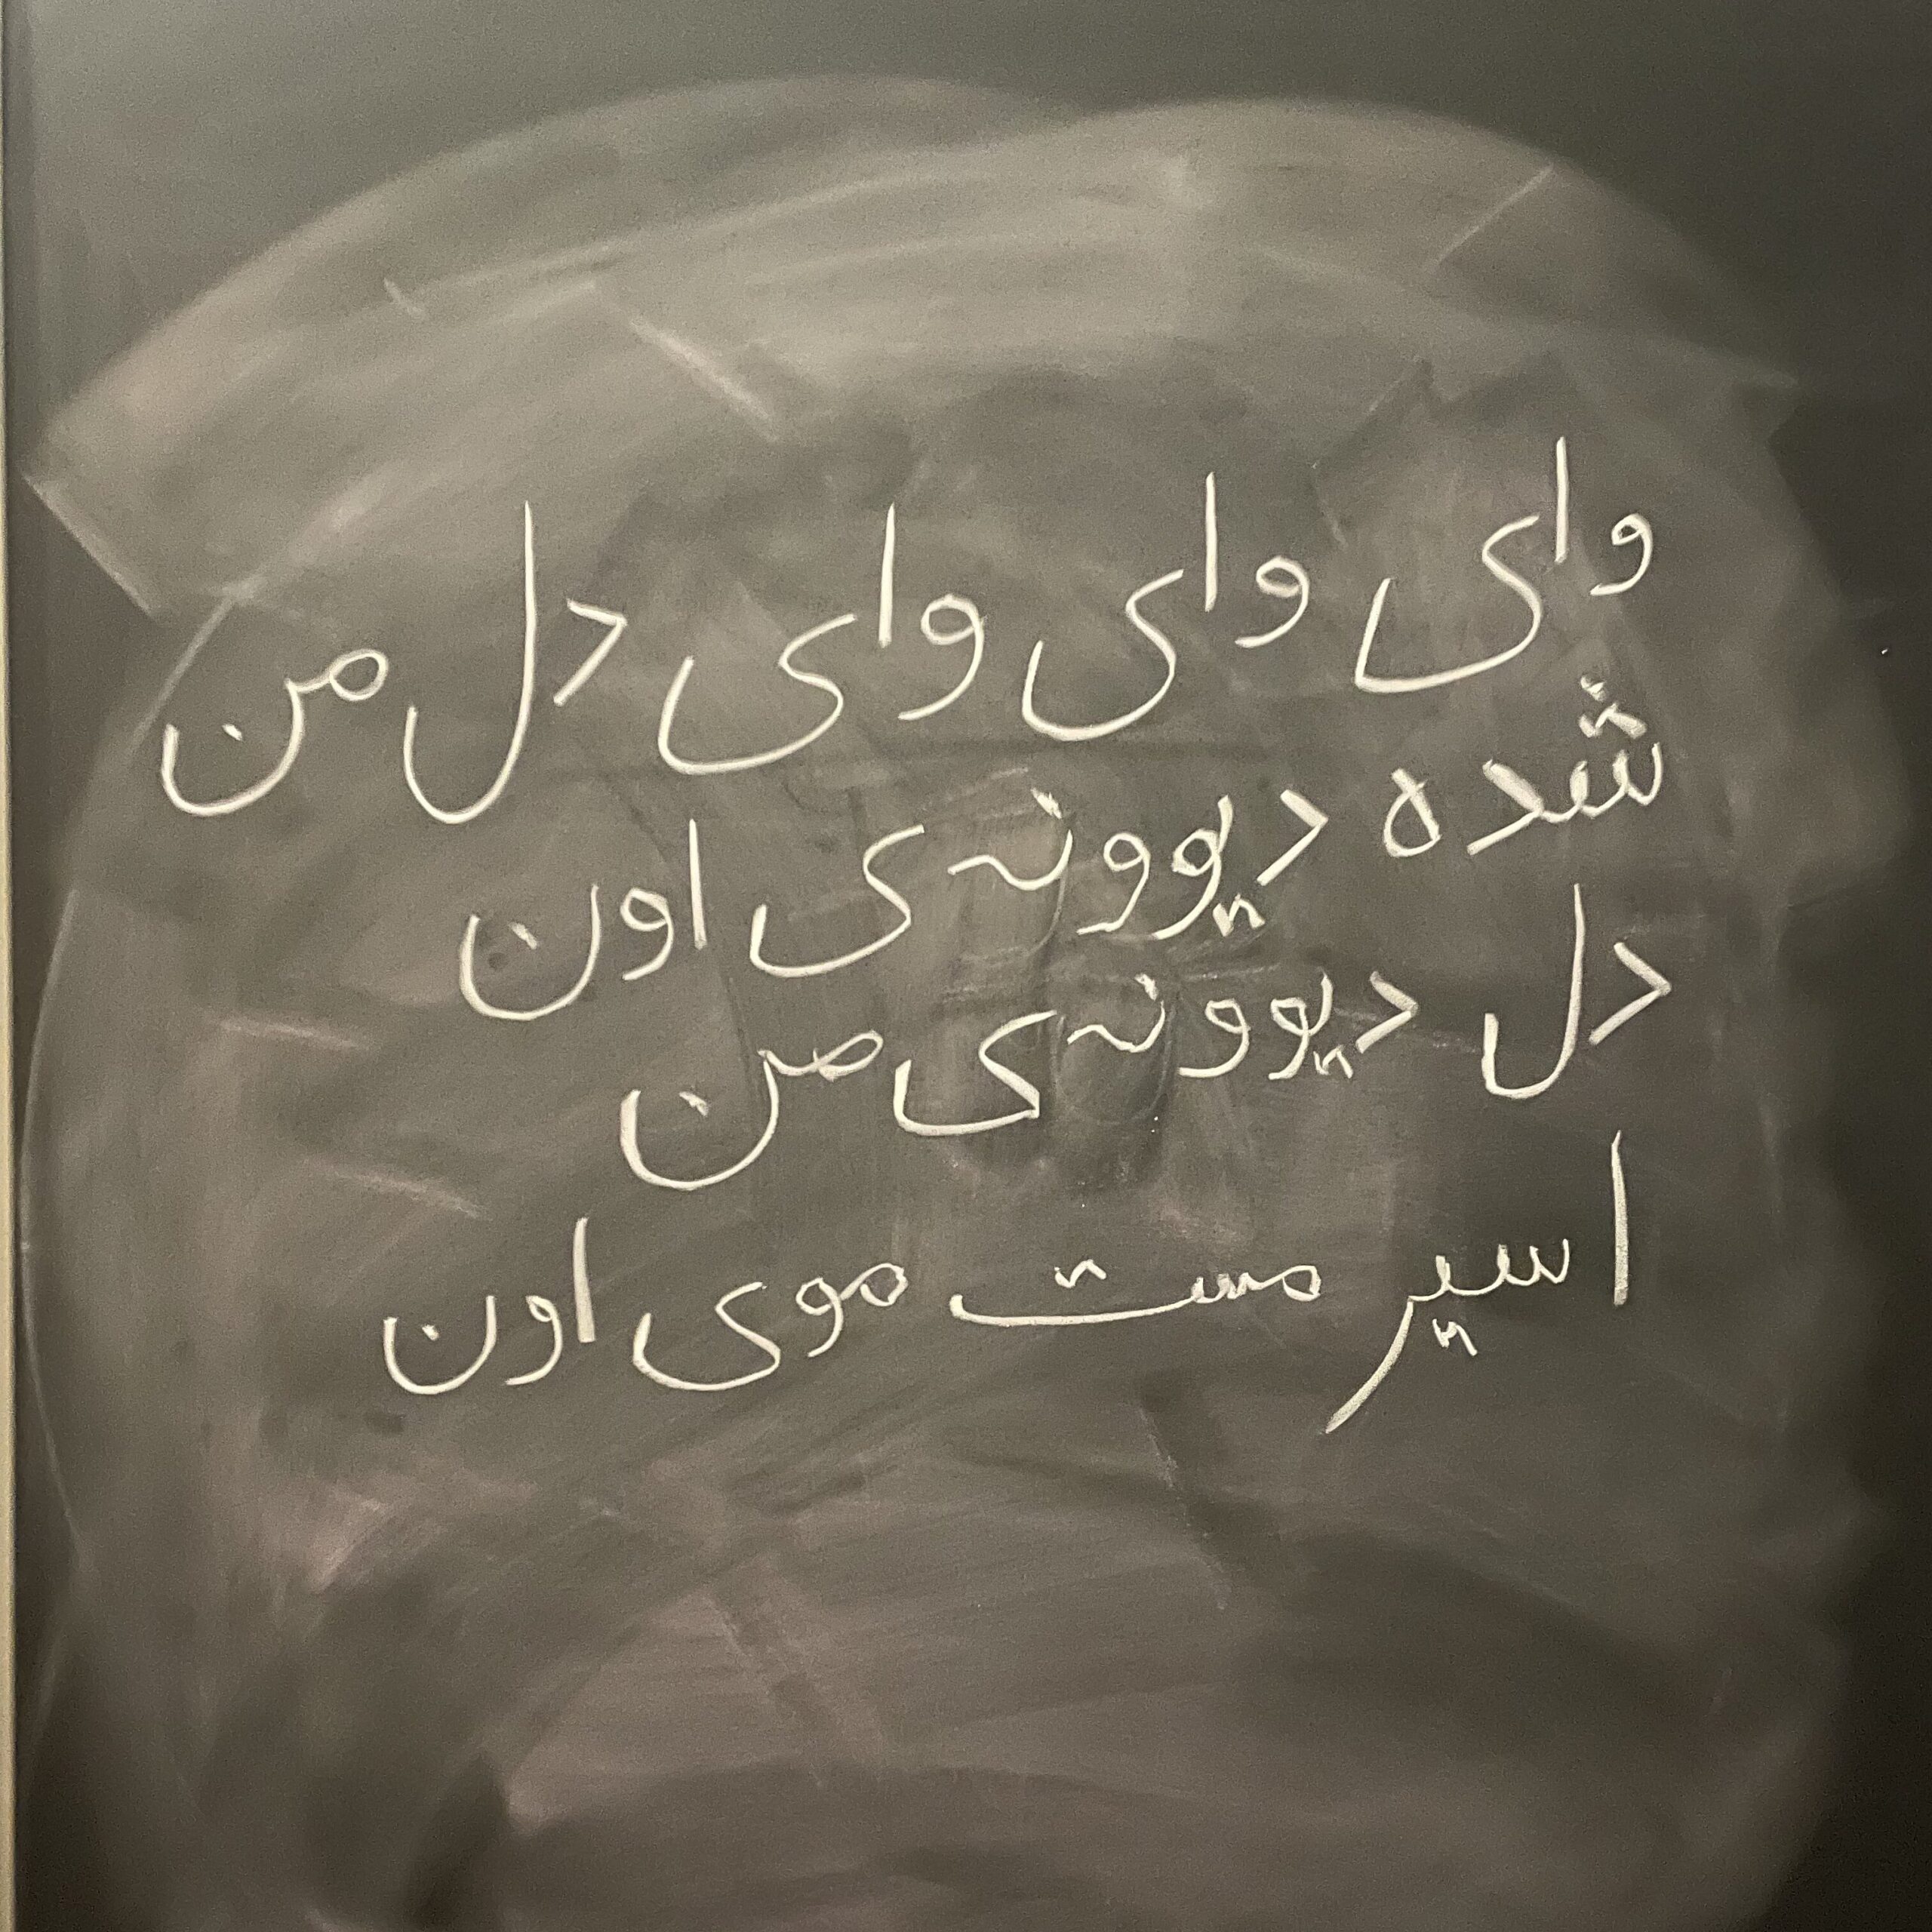 وای وای وای دل من
شده دیوونه‌ی اون
دل دیوونه‌ی من
اسیر مست موی اون